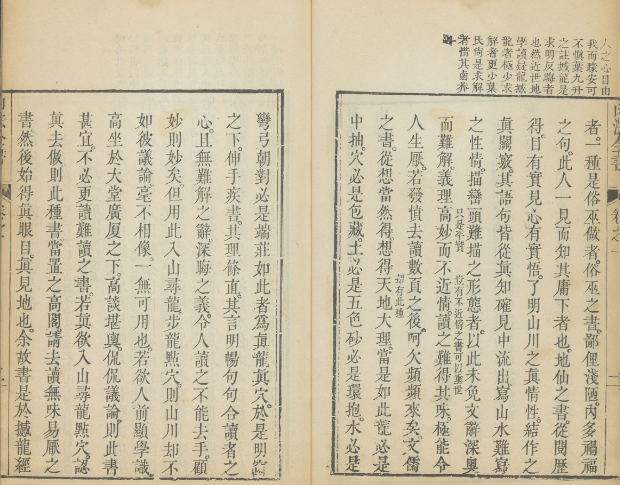 人之心目由
我而矇安可
不愼葉九升
之註撼龍是
求明反晦者
也然近世地
學讀疑龍撼
龍者極少求
解者更少葉
氏尚是求解
者惜其鹵莽
耳
者一種是俗巫做者俗巫之書鄙俚淺陋丙多禍福
之句此人一見而知其庸下者也地仙之書從閱歷
得目有實見心有實悟了明山川之眞情性結作之
眞關竅其語句皆從眞知確見中流出寫山水難寫
之性情描巒頭難描之形態者以此未免文辭深奧
只是平實
豈有不近情之書可以垂世
而難解義理高妙而不近情讀之難得其味極能令
人生厭若發憤去讀數頁之後呵欠頻頻來矣文儒
之書從想當然得想得天地大理當是如此龍必是
却有此種
中抽穴必是包藏土必是五色砂必是環抱水必是
彎弓朝對必是端莊如此者爲眞龍眞穴於是明窓
之下伸手疾書其理條直其言明暢句句合讀者之
心且無難解之辭深晦之義令人讀之不能去手顧
妙則妙矣但用此入山尋龍步龍點穴則山川却不
如彼議論毫不相像一無可用也若欲人前顯學識
高坐於大堂廣厦之下高談堪輿侃侃議論則此書
甚宜不必更讀難讀之書若眞欲入山尋龍點穴認
眞去做則此種書當置之高閣請去讀無味易厭之
書然後始得眞眼目眞見地也余故書是於撼龍經